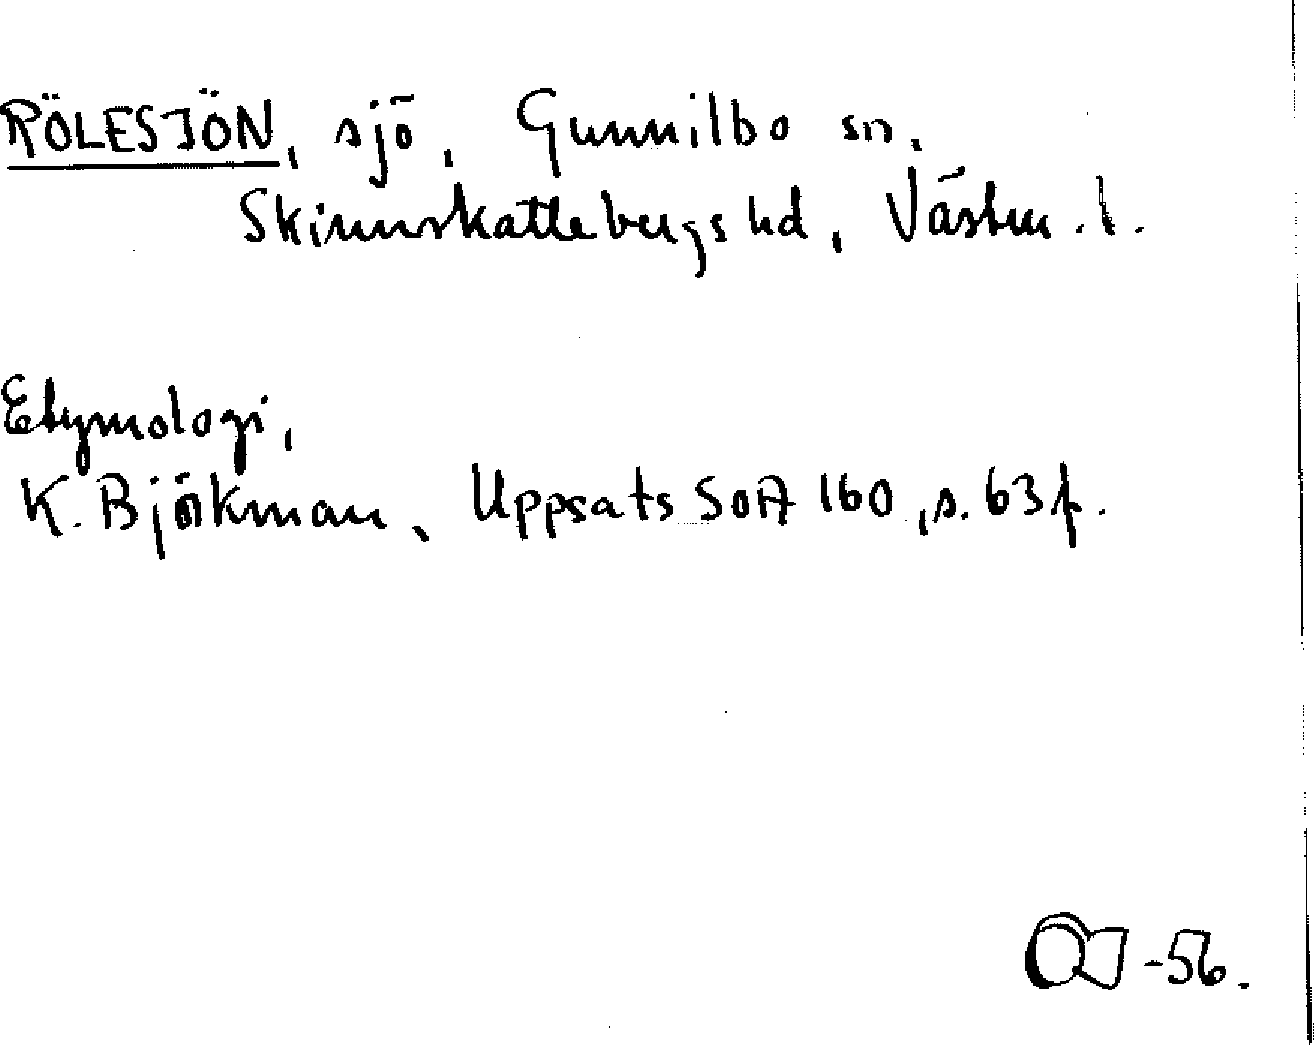 RÖLESJÖN, sjö, Gunnilbo sn.
Skinnskattebergs hd, Västm. l.
Etymologi,
K. Björkman, Uppsats SOA 160, s. 63 f.
-56.